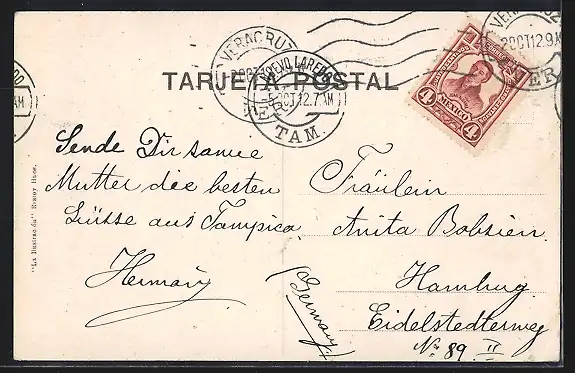 TARJETA POSTAL
VERACRUZ
2 OCT
NUEVO LAREDO
OCT 12. 7 AM
TAM.
VERACRUZ
2 OCT 12. 9 A
VER
DO
AM
4 MEXICO 4
"La Ilustradu" Rubioy Hnos.
Sende Dir sowie
Mutter die besten
Grüsse aus Tampico.
Hermany
Fräulein
Anita Bobsien.
Hamburg
Eidelstedterweg
No 89. II
(Germany.)